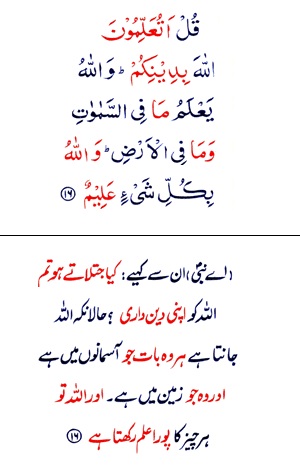 قُلْ اَتُعَلِّمُوْنَ
اللهَ بِدِيْنِكُمْ ؕ وَ اللهُ
يَعْلَمُ مَا فِى السَّمٰوٰتِ
وَمَا فِى الْاَرْضِ ؕ وَ اللهُ
بِكُلِّ شَىْءٍ عَلِيْمٌ ۝۱۶
(اے نبیؐ) ان سے کہیے: کیا جتلاتے ہو تم
اللہ کو اپنی دین داری ؟ حالانکہ اللہ
جانتا ہے ہر وہ بات جو آسمانوں میں ہے
اور وہ جو زمین میں ہے۔ اور اللہ تو
ہر چیز کا پورا علم رکھتا ہے ۝۱۶